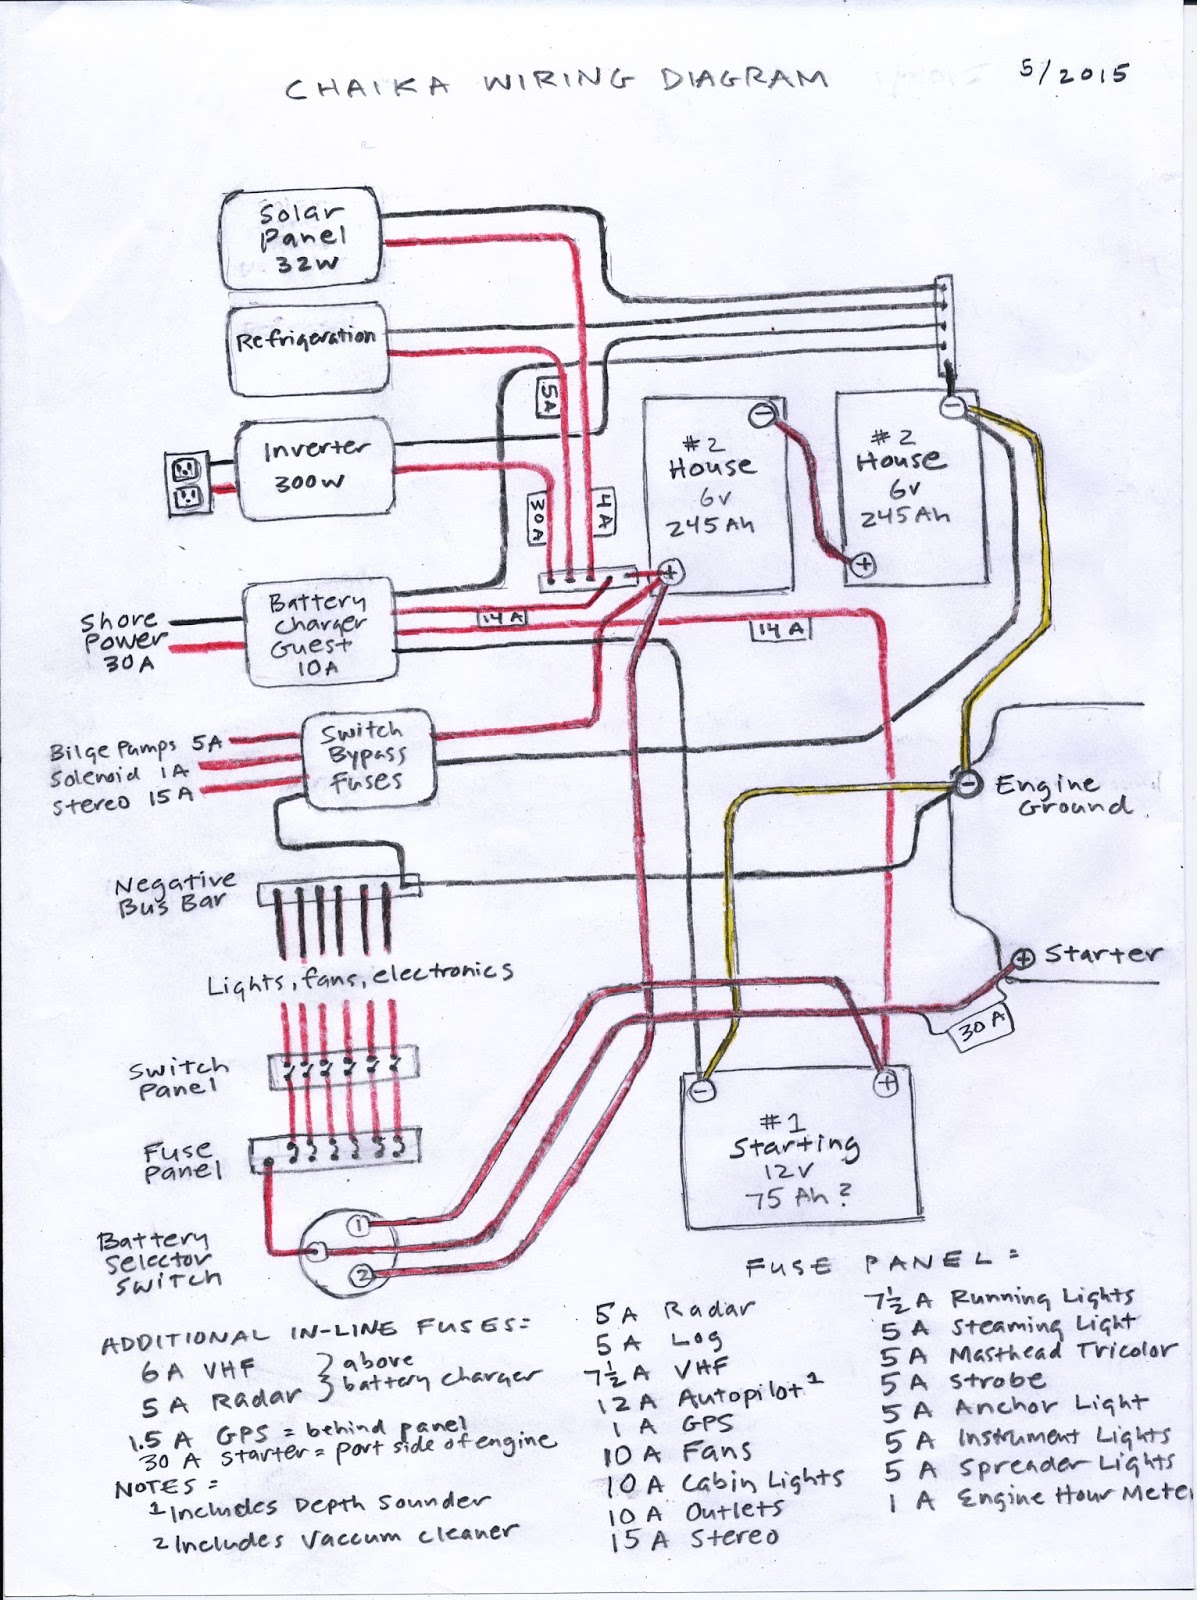 CHAIKA WIRING DIAGRAM
5/2015
Solar
Panel
32W
Refrigeration
Inverter
300W
5A
30A
4A
#2
House
6v
245Ah
#2
House
6v
245Ah
Shore
Power
30A
Battery
Charger
Guest
10A
14A
14A
Bilge Pumps 5A
Solenoid 1A
Stereo 15A
Switch
Bypass
Fuses
Engine
Ground
Negative
Bus Bar
Lights, fans, electronics
Starter
30A
Switch
Panel
Fuse
Panel
#1
Starting
12v
75 Ah?
Battery
Selector
Switch
1
2
ADDITIONAL IN-LINE FUSES =
6A VHF
5A Radar
above
battery charger
1.5 A GPS = behind panel
30 A Starter = port side of engine
NOTES =
1 Includes Depth Sounder
2 Includes Vaccum cleaner
FUSE PANEL =
5A Radar
5A Log
7½A VHF
12A Autopilot1
1 A GPS
10A Fans
10A Cabin Lights
10A Outlets
15A Stereo
7½A Running Lights
5A Steaming Light
5A Masthead Tricolor
5A Strobe
5A Anchor Light
5A Instrument Lights
5A Spreader Lights
1 A Engine Hour Mete